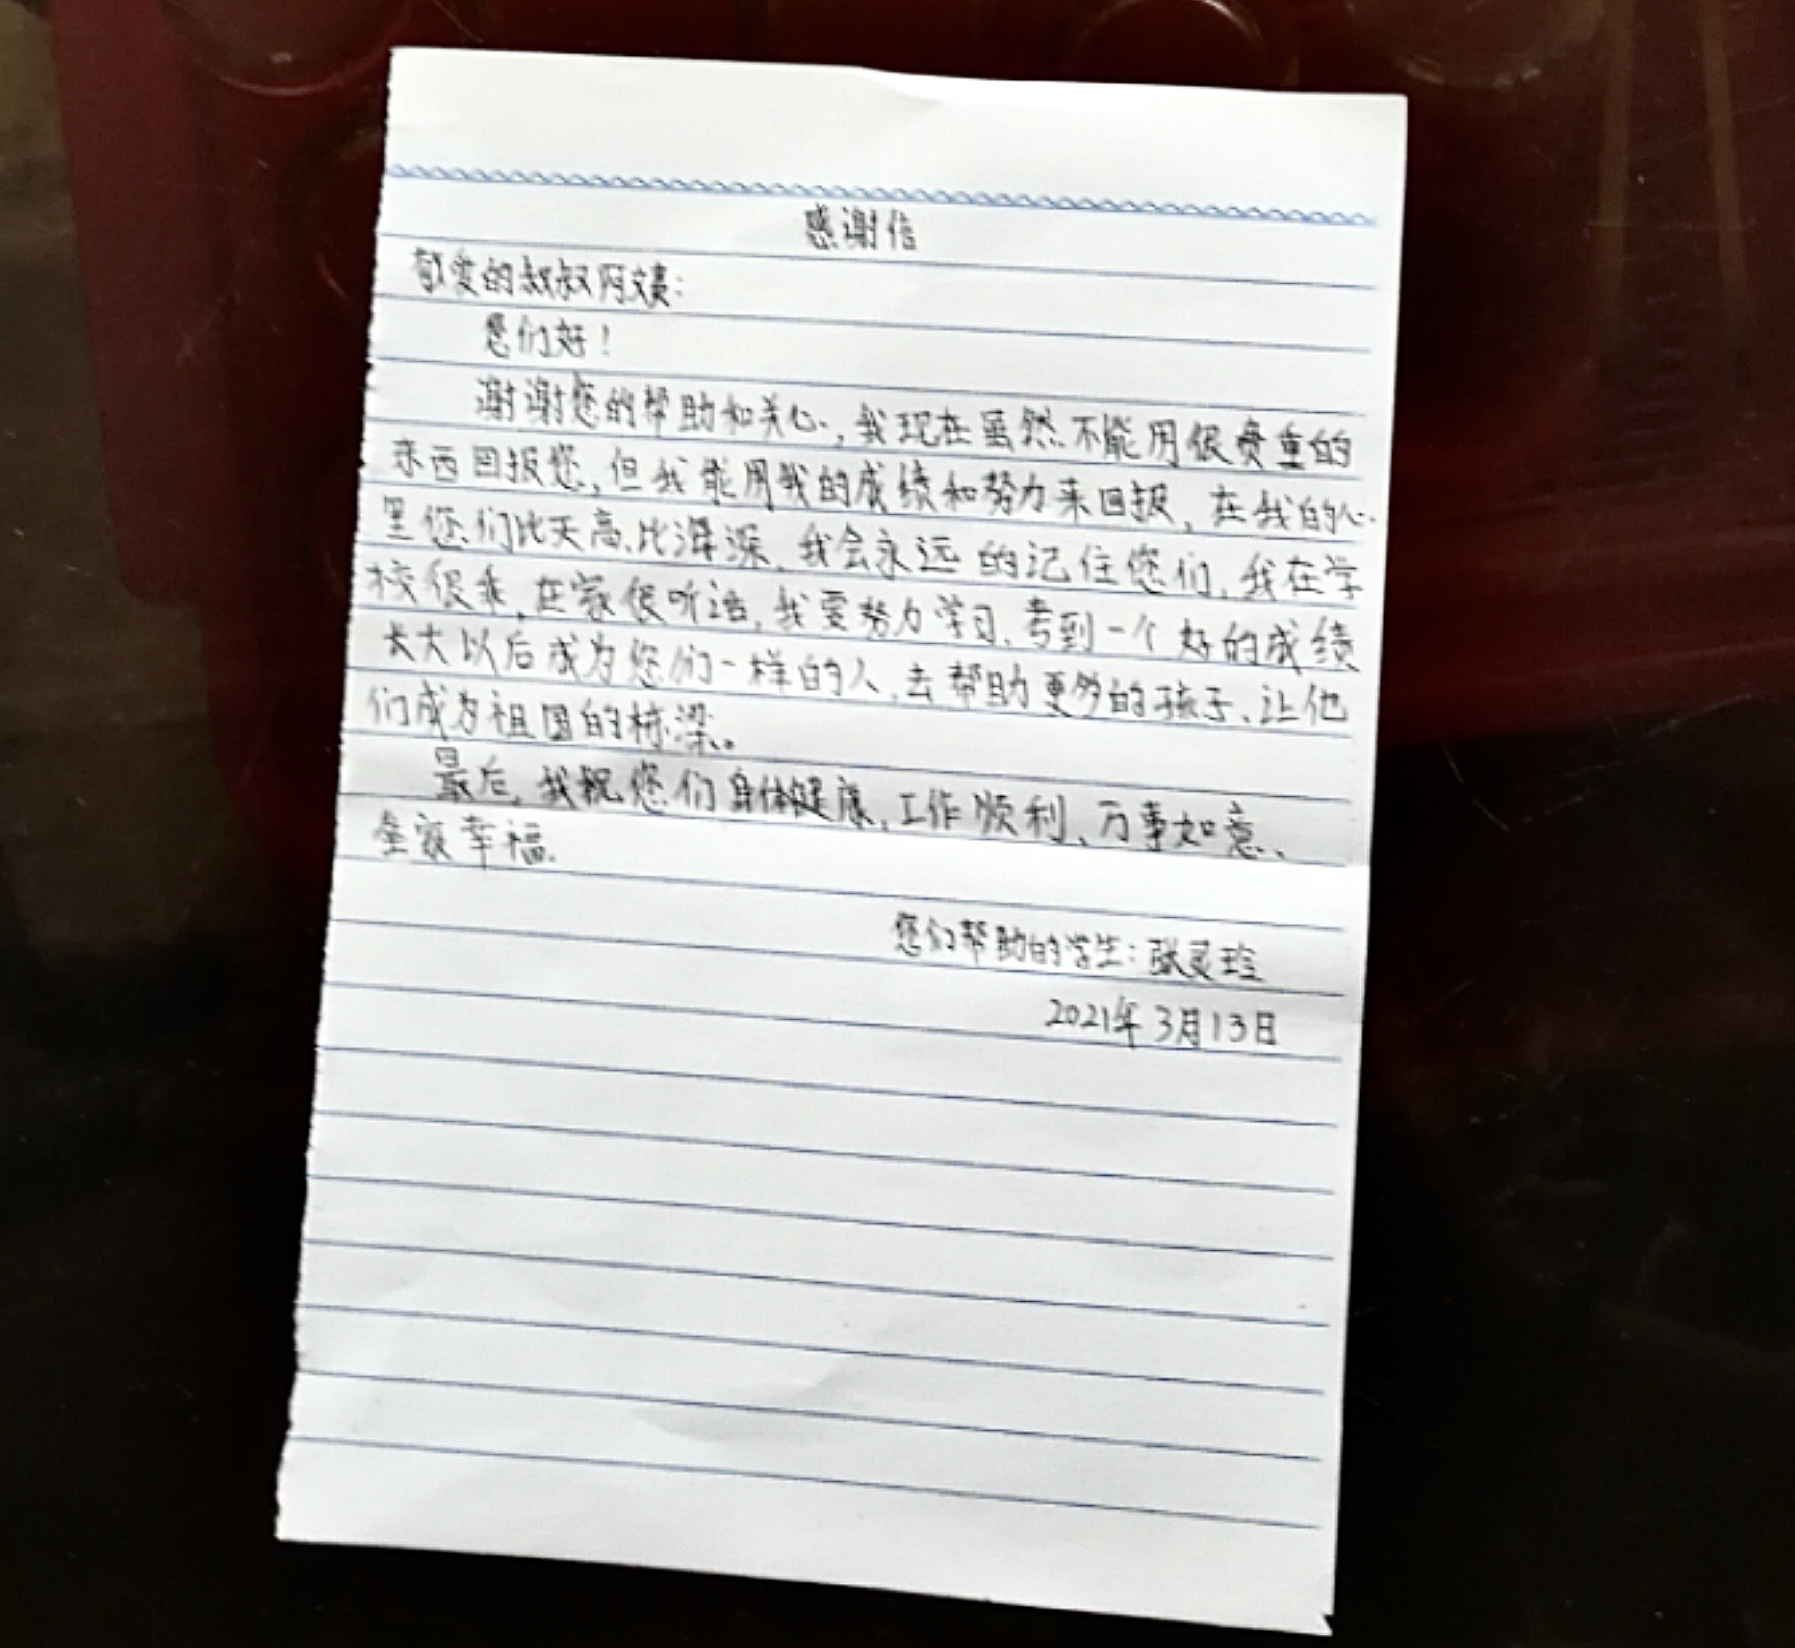 感谢信
敬爱的叔叔阿姨:
您们好!
谢谢您的帮助和关心,我现在虽然不能用很贵重的
东西回报您,但我能用我的成绩和努力来回报,在我的心
里您们比天高、比海深,我会永远的记住您们,我在学
校很乖,在家很听话,我要努力学习、考到一个好的成绩
长大以后成为您们一样的人,去帮助更多的孩子、让他
们成为祖国的栋梁。
最后,我祝您们身体健康,工作顺利、万事如意、
全家幸福.
您们帮助的学生:张灵玲
2021年3月13日